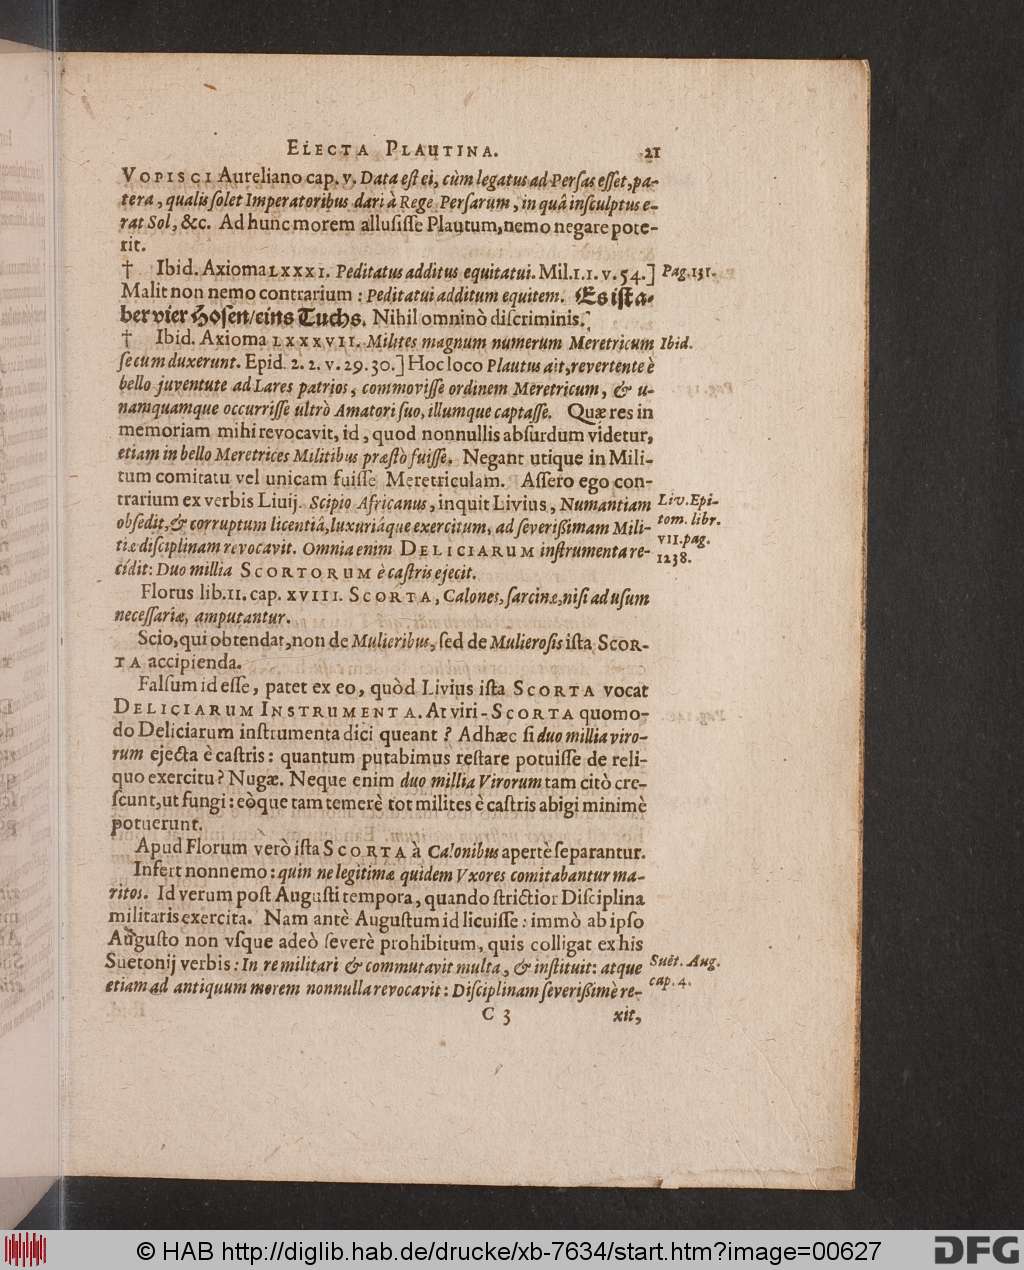 ELECTA PLAUTINA. 21
VOPISCI Aureliano cap. v. Data eſt ei, cùm legatus ad Perſas eſſet, pa-
tera, qualis ſolet Imperatoribus dari à Rege Perſarum, in quâ inſculptus e-
rat Sol, &c. Ad hunc morem alluſiſſe Plautum, nemo negare pote-
rit.
† Ibid. Axioma LXXXI. Peditatus additus equitatui. Mil. 1. 1. v. 54.] Pag. 131.
Malit non nemo contrarium: Peditatui additum equitem. Es iſt a-
ber vier Hoſen/eins Tuchs. Nihil omninò diſcriminis.
† Ibid. Axioma LXXXVII. Milites magnum numerum Meretricum Ibid.
ſecum duxerunt. Epid. 2. 2. v. 29. 30.] Hoc loco Plautus ait, revertente è
bello juventute ad Lares patrios, commoviſſe ordinem Meretricum, & u-
namquamque occurriſſe ultrò Amatori ſuo, illumque captaſſe. Quæ res in
memoriam mihi revocavit, id, quod nonnullis abſurdum videtur,
etiam in bello Meretrices Militibus præſtò fuiſſe. Negant utique in Mili-
tum comitatu vel unicam fuiſſe Meretriculam. Aſſero ego con-
trarium ex verbis Liuij. Scipio Africanus, inquit Livius, Numantiam Liv. Epi-
obſedit, & corruptum licentiâ, luxuriáque exercitum, ad ſeverißimam Mili- tom. libr.
tiæ diſciplinam revocavit. Omnia enim DELICIARUM inſtrumenta re- VII. pag.
cídit: Duo millia SCORTORUM è caſtris ejecit. 1238.
Florus lib. II. cap. XVIII. SCORTA, Calones, ſarcinæ, niſi ad uſum
neceſſariæ, amputantur.
Scio, qui obtendat, non de Mulieribus, ſed de Mulieroſis iſta SCOR-
TA accipienda.
Falſum id eſſe, patet ex eo, quòd Livius iſta SCORTA vocat
DELICIARUM INSTRUMENTA. At viri-SCORTA quomo-
do Deliciarum inſtrumenta dici queant? Adhæc ſi duo millia viro-
rum ejecta è caſtris: quantum putabimus reſtare potuiſſe de reli-
quo exercitu? Nugæ. Neque enim duo millia Virorum tam citò cre-
ſcunt, ut fungi: eòque tam temerè tot milites è caſtris abigi minimè
potuerunt.
Apud Florum verò iſta SCORTA à Calonibus apertè ſeparantur.
Infert nonnemo: quin ne legitimæ quidem Vxores comitabantur ma-
ritos. Id verum poſt Auguſti tempora, quando ſtrictior Diſciplina
militaris exercita. Nam antè Auguſtum id licuiſſe: immò ab ipſo
Auguſto non vſque adeò ſeverè prohibitum, quis colligat ex his
Suetonij verbis: In re militari & commutavit multa, & inſtituit: atque Suët. Aug.
etiam ad antiquum morem nonnulla revocavit: Diſciplinam ſeverißimè re- cap. 4.
C 3 xit,
© HAB http://diglib.hab.de/drucke/xb-7634/start.htm?image=00627
DFG